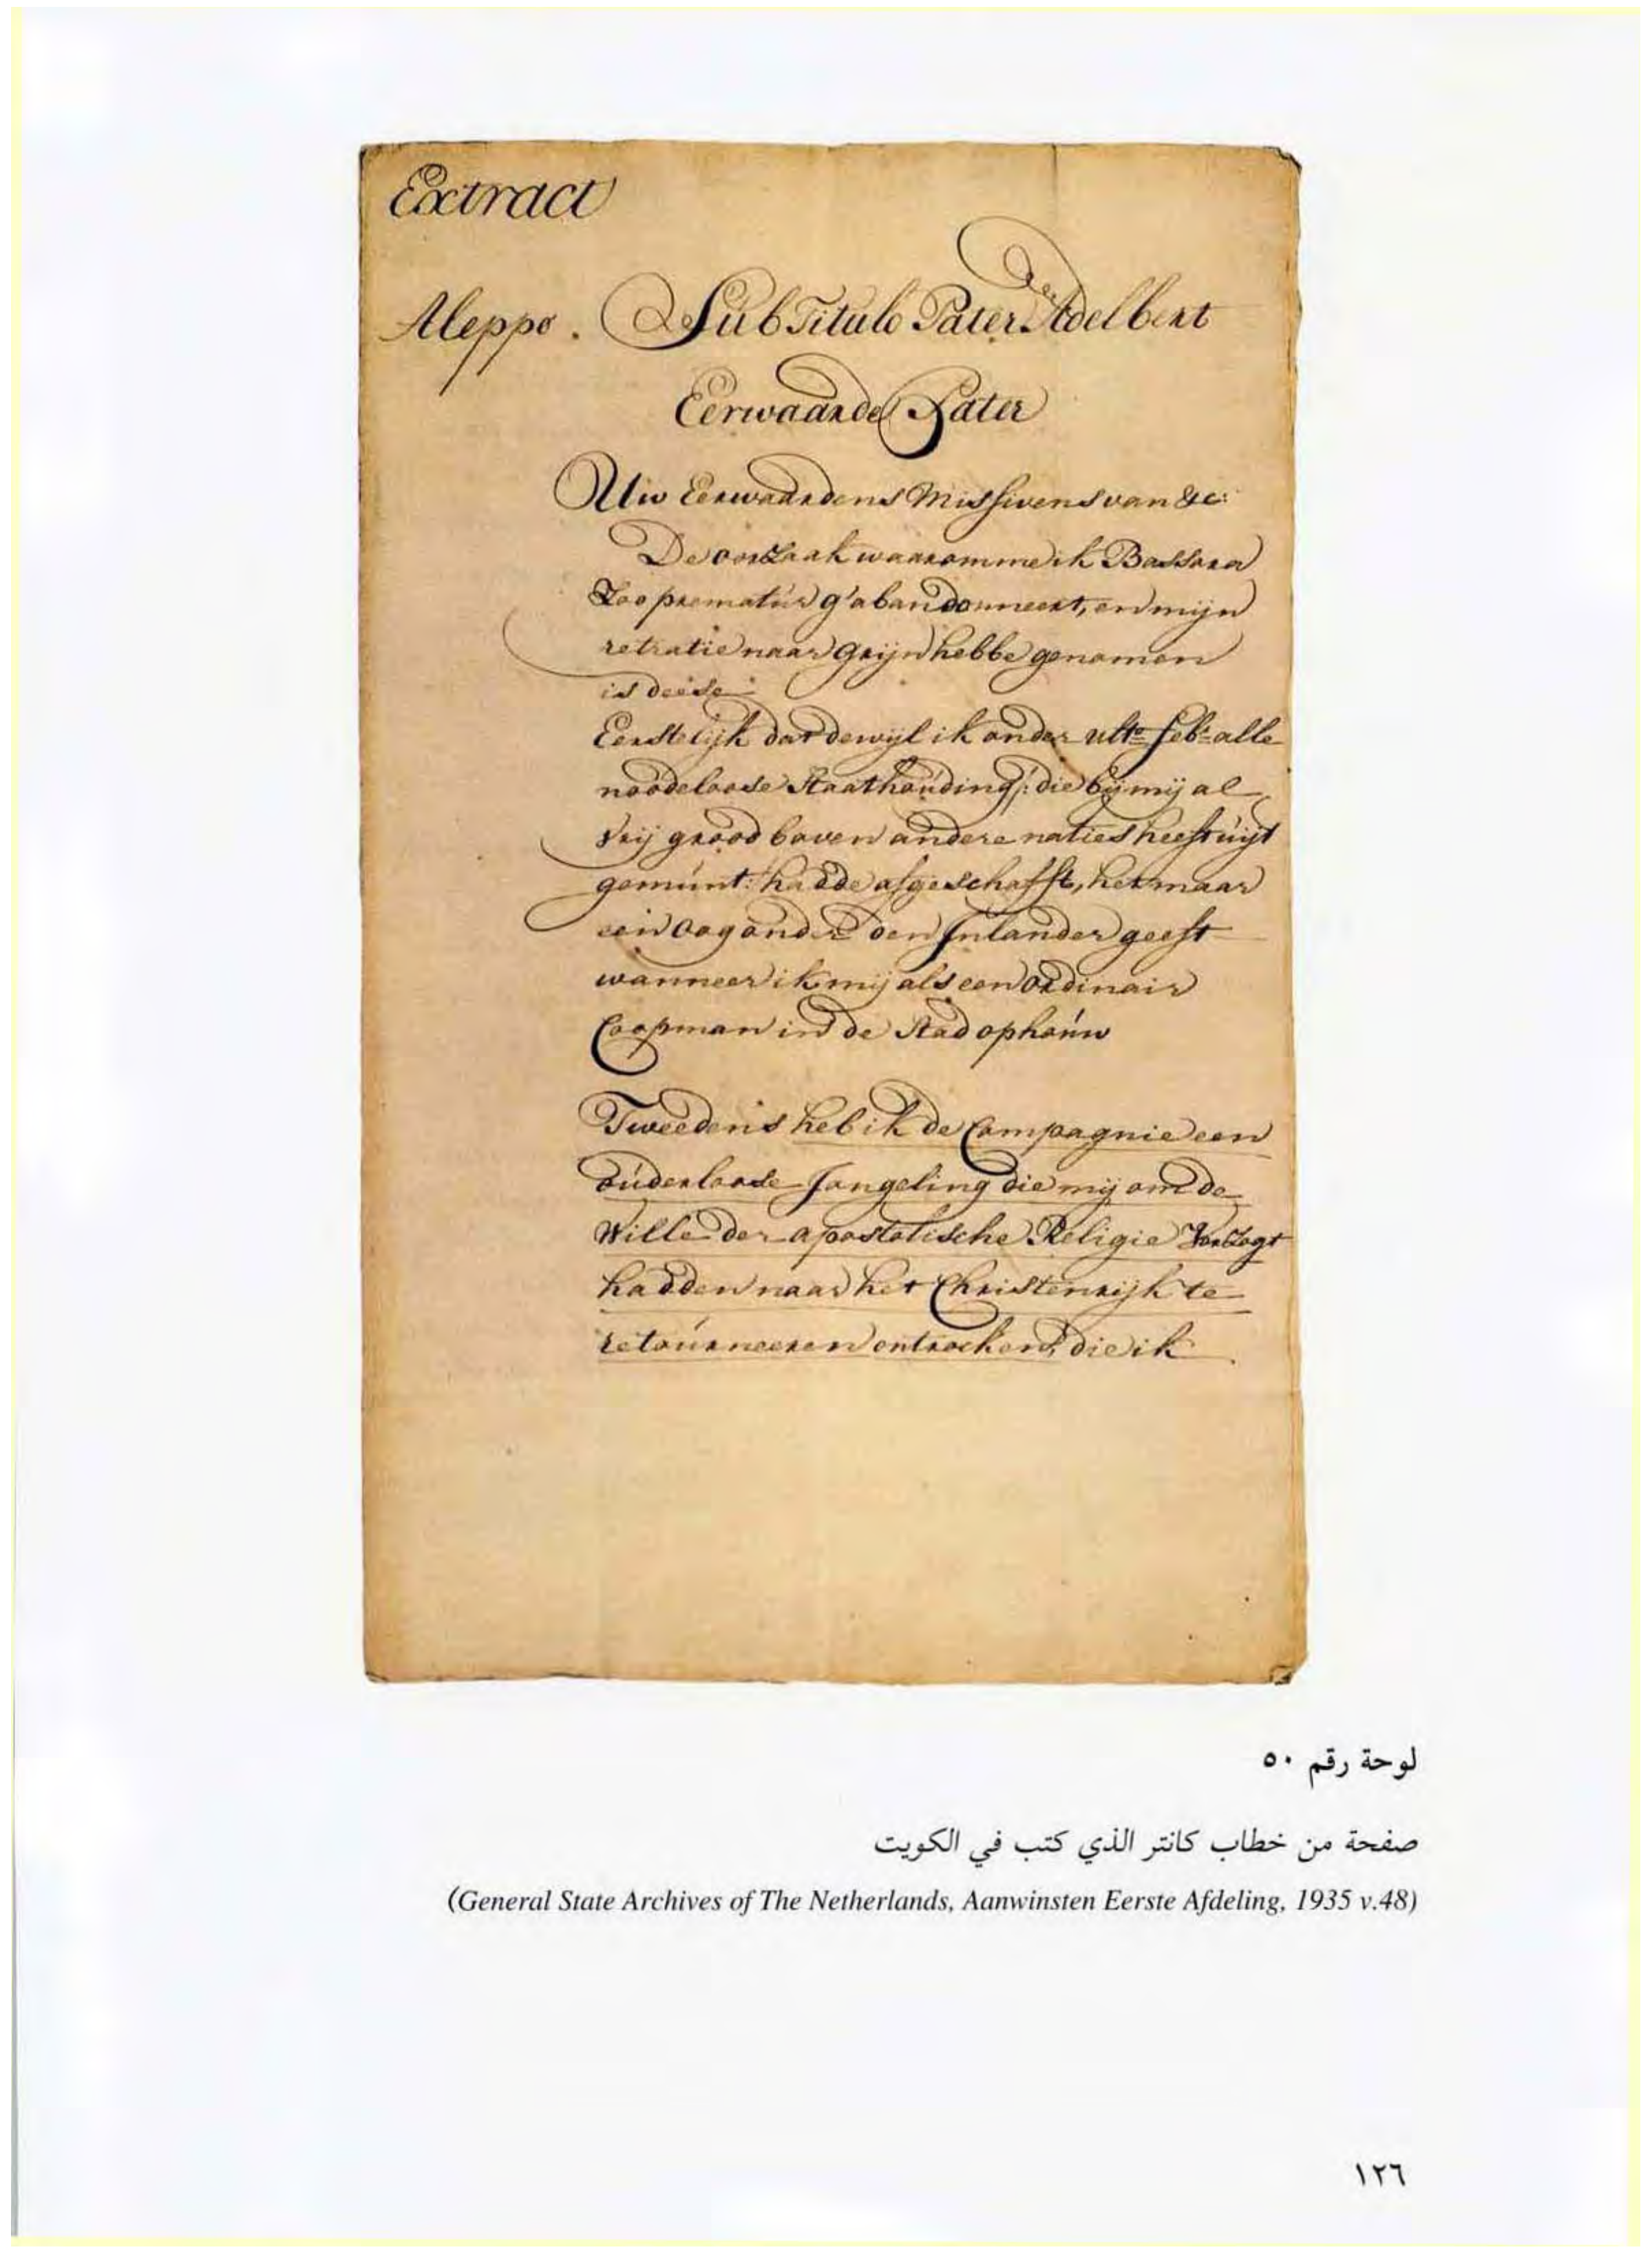 Extract
Aleppo. Sub Titulo Pater Adelbert
Eerwaarde Pater
Uw Eerwaardens Missivens van &c:
De oorzaak waaromme ik Bassora
Zoo prematúr g'abandonneert, en mijn
retratie naar Grijn hebbe genomen
is deese
Eerstelijk dat dewijl ik onder ult:o feb:r alle
noodeloose Staathoúding /: die bij mij al
vrij grood boven andere naties heeft uijt
gemúnt :/ hadde afgeschafft, het maar
een oog onder den Inlander geeft
wanneer ik mij als een ordinair
Coopman in de Stad ophoúw
Tweedens heb ik de Compagnie een
oúderloose Jongeling die mij om de
Wille der apostolische Religie Verzogt
hadden naar het Christenrijk te
retoúrneeren ontrocken, die ik
لوحة رقم ٥٠
صفحة من خطاب كانتر الذي كتب في الكويت
(General State Archives of The Netherlands, Aanwinsten Eerste Afdeling, 1935 v.48)
١٢٦